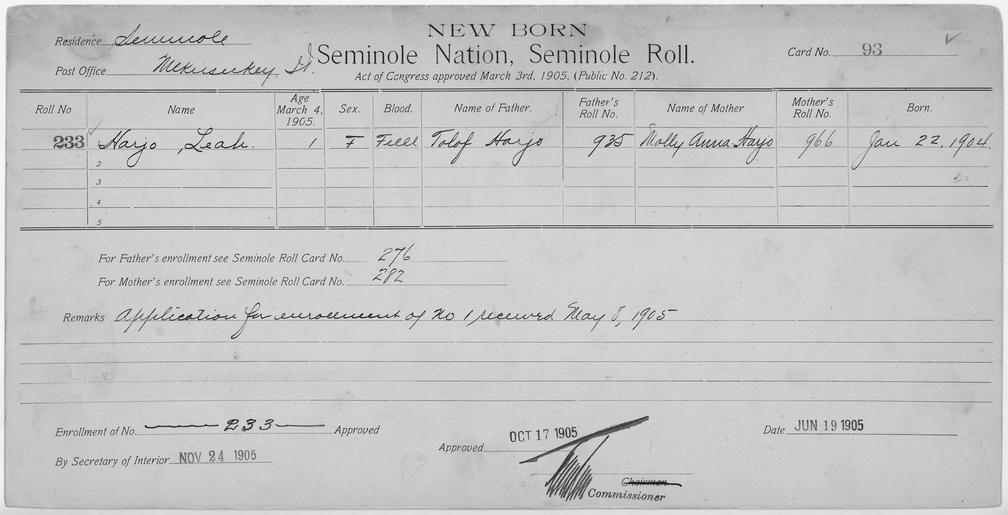 NEW BORN
Residence Seminole
Seminole Nation, Seminole Roll.
Card No. 93
Post Office Mekusukey, I.T.
Act of Congress approved March 3rd, 1905, (Public No. 212).
Roll No Name Age March 4, 1905. Sex. Blood. Name of Father. Father's Roll No. Name of Mother Mother's Roll No. Born.
233 Harjo, Leah. 1 F Full Tolof Harjo 935 Molly Anna Harjo 966 Jan 22, 1904.
2
3
4
5
For Father's enrollment see Seminole Roll Card No. 276
For Mother's enrollment see Seminole Roll Card No. 282
Remarks Application for enrollment of No 1 received May 8, 1905
Enrollment of No. 233 Approved
Approved OCT 17 1905
Date JUN 19 1905
By Secretary of Interior NOV 24 1905
Chairman
Commissioner